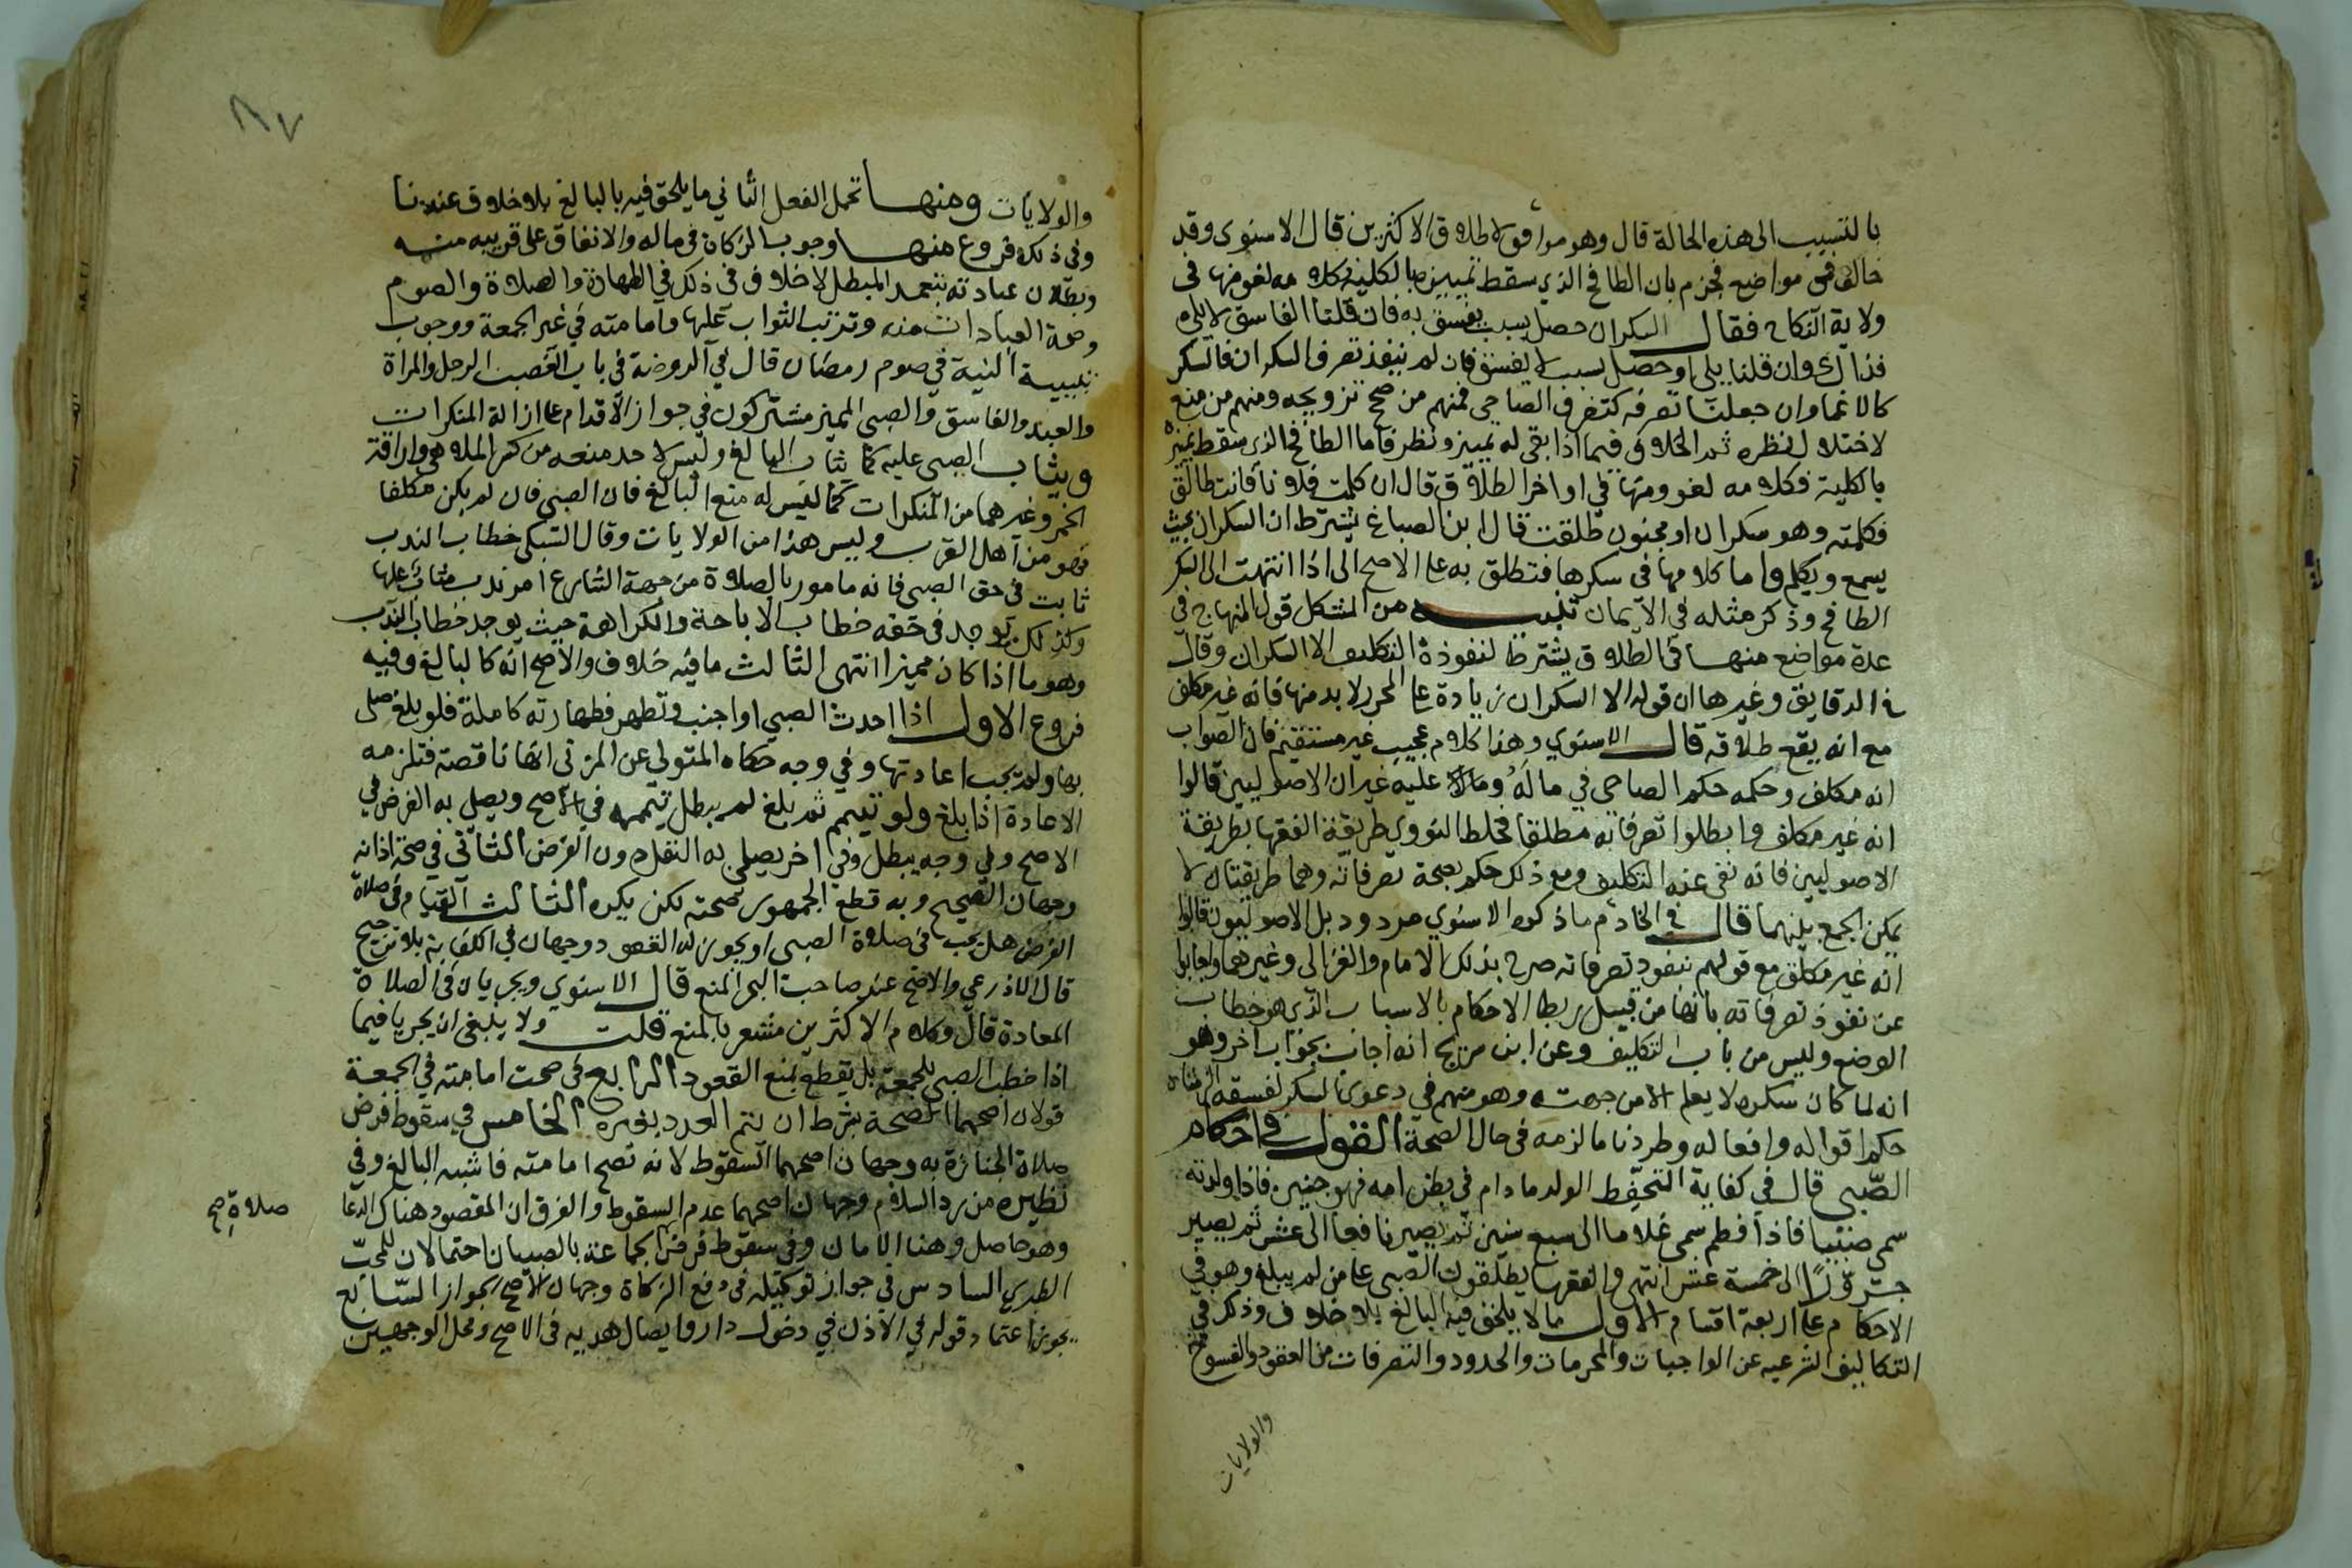 بالتسبب الى هذه الحالة قال وهو موافق لاطلاق الاكثرين قال الاسنوي وقد
خالف في مواضع فجزم بان الطافح الذي سقط تمييزه بالكلية كلامه لغو منها في
ولاية النكاح فقال السكران حصل بسبب يفسق به فان قلنا الفاسق لا يلي
فذاك وان قلنا يلي او حصل بسبب لا يفسق فان لم ينفذ تصرف السكران فالسكر
كالاغما وان جعلنا تصرفه كتصرف الصاحي فمنهم من صحح تزويجه ومنهم من منع
لاختلال نظره ثم الخلاف فيما اذا بقي له تمييز ونظر فاما الطافح الذي سقط تميزه
بالكلية فكلامه لغو ومنها في اواخر الطلاق قال ان كلمت فلانا فانت طالق
فكلمته وهو سكران او مجنون طلقت قال ابن الصباغ يشترط ان السكران بحيث
يسمع ويكلم واما كلامها في سكرها فتطلق به على الاصح الى اذا انتهت الى السكر
الطافح وذكر مثله في الايمان تنبيه من المشكل قول المنهاج في
عدة مواضع منها في الطلاق يشترط لنفوذه التكليف الا السكران وقال
في الدقايق وغيرها ان قوله الا السكران زيادة على المحرر لا بد منها فانه غير مكلف
مع انه يقع طلاقه قال الاسنوي وهذا كلام عجيب غير مستقيم فان الصواب
انه مكلف وحكمه حكم الصاحي في ماله وما عليه غير ان الاصوليين قالوا
انه غير مكلف وابطلوا تصرفاته مطلقا فخلط النووي طريقة الفقها بطريقة
الاصوليين فانه نفى عنه التكليف ومع ذلك حكم بصحة تصرفاته وهما طريقتان لا
يمكن الجمع بينهما قال في الخادم ما ذكره الاسنوي مردود بل الاصوليون قالوا
انه غير مكلف مع قولهم بنفوذ تصرفاته صرح بذلك الامام والغزالي وغيرهما واجابوا
عن نفوذ تصرفاته بانها من قبيل ربط الاحكام بالاسباب الذي هو خطاب
الوضع وليس من باب التكليف وعن ابن سريج انه اجاب بجواب اخر وهو
انه لما كان سكره لا يعلم الا من جهته وهو متهم في دعوى السكر لفسقه الزمناه
حكم اقواله وافعاله وطردنا ما لزمه في حال الصحة القول في احكام
الصبي قال في كفاية التحفظ الولد ما دام في بطن امه فهو جنين فاذا ولدته
سمي صبيا فاذا فطم سمي غلاما الى سبع سنين ثم يصير يافعا الى عشر ثم يصير
حزورا الى خمسة عشر انتهى والفقها يطلقون الصبي على من لم يبلغ وهو في
الاحكام على اربعة اقسام الاول ما لا يلحق فيه البالغ بلا خلاف وذلك في
التكاليف الشرعيه عن الواجبات والمحرمات والحدود والتصرفات من العقود والفسوخ
والولايات
٨٧
والولايات ومنها تحمل العقل الثاني ما يلحق فيه بالبالغ بلا خلاف عندنا
وفي ذلك فروع منها وجوب الزكاة في ماله والانفاق على قريبه منه
وبطلان عبادته بتعمد المبطل لا خلاف في ذلك في الطهارة والصلاة والصوم
وصحة العبادات منه وترتب الثواب عليها وامامته في غير الجمعة ووجوب
تبييت النية في صوم رمضان قال في الروضة في باب الغصب الرجل والمراة
والعبد والفاسق والصبي المميز مشتركون في جواز الاقدام على ازالة المنكرات
ويثاب الصبي عليه كما يثاب البالغ وليس لاحد منعه من كسر الملاهي واراقة
الخمر وغيرهما من المنكرات كما ليس له منع البالغ فان الصبي فان لم يكن مكلفا
فهو من اهل القرب وليس هذا من الولايات وقال السبكي خطاب الندب
ثابت في حق الصبي فانه مامور بالصلاة من جهة الشارع امر ندب مثاب عليها
وكذلك يوجد في حقه خطاب الاباحة والكراهة حيث يوجد خطاب الندب
وهو ما اذا كان مميزا انتهى الثالث ما فيه خلاف والاصح انه كالبالغ وفيه
فروع الاول اذا احدث الصبي او اجنب وتطهر فطهارته كاملة فلو بلغ صلى
بها ولم يجب اعادتها وفي وجه حكاه المتولي عن المزني انها ناقصة فتلزمه
الاعادة اذا بلغ ولو تيمم ثم بلغ لم يبطل تيممه في الاصح ويصلي به الفرض في
الاصح وفي وجه يبطل وفي اخر يصلي به النفل دون الفرض الثاني في صحة اذانه
وجهان الصحيح وبه قطع الجمهور صحته لكن يكره الثالث القيام في صلاة
الفرض هل يجب في صلاة الصبي او يجوز له القعود وجهان في الكفاية بلا ترجيح
قال الاذرعي والاصح عند صاحب البحر المنع قال الاسنوي ويجريان في الصلاة
المعادة قال وكلام الاكثرين مشعر بالمنع قلت ولا ينبغي ان يجريا فيما
اذا خطب الصبي للجمعة بل يقطع بمنع القعود الرابع في صحت امامته في الجمعة
قولان اصحهما الصحة بشرط ان يتم العدد بغيره الخامس في سقوط فرض
صلاة الجنازة به وجهان اصحهما السقوط لانه تصح امامته فاشبه البالغ وفي
نظيره من رد السلام وجهان اصحهما عدم السقوط والفرق ان المقصود هناك الدعا
صلاة صح
وهو حاصل وهنا الامان وفي سقوط فرض الجماعة بالصبيان احتمالان للمحب
الطبري السادس في جواز توكيله في دفع الزكاة وجهان الاصح الجواز السابع
يجوز اعتماد قوله في الاذن في دخول دار وايصال هديه في الاصح ومحل الوجهين